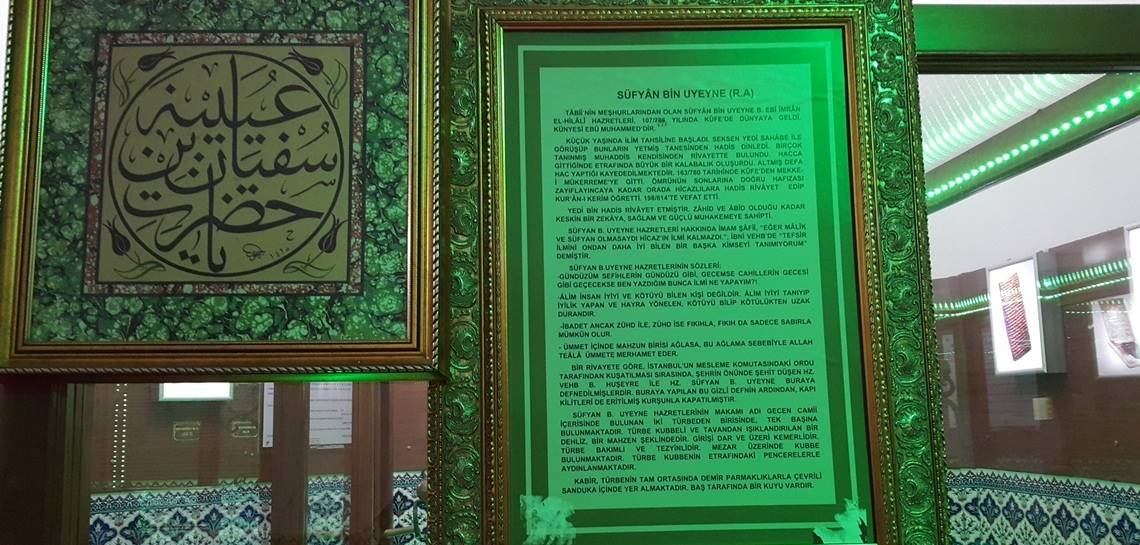 يا حضرت
سفيان بن
عيينه
١٤١٥
SÜFYÂN BİN UYEYNE (R.A)
TÂBİÎ'NİN MEŞHURLARINDAN OLAN SÜFYÂN BİN UYEYNE B. EBÎ İMRÂN
EL-HİLÂLİ HAZRETLERİ, 107/ YILINDA KÛFE'DE DÜNYAYA GELDİ.
KÜNYESİ EBÛ MUHAMMED'DİR.
KÜÇÜK YAŞINDA İLİM TAHSİLİNE BAŞLADI. SEKSEN YEDİ SAHÂBE İLE
GÖRÜŞÜP BUNLARIN YETMİŞ TANESİNDEN HADİS DİNLEDİ. BİRÇOK
TANINMIŞ MUHADDİS KENDİSİNDEN RİVAYETTE BULUNDU. HACCA
GİTTİĞİNDE ETRAFINDA BÜYÜK BİR KALABALIK OLUŞURDU. ALTMIŞ DEFA
HAC YAPTIĞI KAYEDEDİLMEKTEDİR. 163/780 TARİHİNDE KÛFE'DEN MEKKE-
İ MÜKERREME'YE GİTTİ. ÖMRÜNÜN SONLARINA DOĞRU HAFIZASI
ZAYIFLAYINCAYA KADAR ORADA HİCAZLILARA HADİS RİVÂYET EDİP
KUR'ÂN-I KERİM ÖĞRETTİ. 198/814'TE VEFAT ETTİ.
YEDİ BİN HADİS RİVÂYET ETMİŞTİR. ZÂHİD VE ÂBİD OLDUĞU KADAR
KESKİN BİR ZEKÂYA, SAĞLAM VE GÜÇLÜ MUHAKEMEYE SAHİPTİ.
SÜFYAN B. UYEYNE HAZRETLERİ HAKKINDA İMAM ŞÂFİÎ, "EĞER MÂLİK
VE SÜFYAN OLMASAYDI HİCAZ'IN İLMİ KALMAZDI.", İBNİ VEHB'DE "TEFSİR
İLMİNİ ONDAN DAHA İYİ BİLEN BİR BAŞKA KİMSEYİ TANIMIYORUM"
DEMİŞTİR.
SÜFYAN B.UYEYNE HAZRETLERİNİN SÖZLERİ:
-GÜNDÜZÜM SEFİHLERİN GÜNDÜZÜ GİBİ, GECEMSE CAHİLLERİN GECESİ
GİBİ GEÇECEKSE BEN YAZDIĞIM BUNCA İLMİ NE YAPAYIM?!
-ÂLİM İNSAN İYİYİ VE KÖTÜYÜ BİLEN KİŞİ DEĞİLDİR. ÂLİM İYİYİ TANIYIP
İYİLİK YAPAN VE HAYRA YÖNELEN, KÖTÜYÜ BİLİP KÖTÜLÜKTEN UZAK
DURANDIR.
-İBADET ANCAK ZÜHD İLE, ZÜHD İSE FIKIHLA, FIKIH DA SADECE SABIRLA
MÜMKÜN OLUR.
- ÜMMET İÇİNDE MAHZUN BİRİSİ AĞLASA, BU AĞLAMA SEBEBİYLE ALLAH
TEÂLÂ ÜMMETE MERHAMET EDER.
BİR RİVAYETE GÖRE, İSTANBUL'UN MESLEME KOMUTASINDAKİ ORDU
TARAFINDAN KUŞATILMASI SIRASINDA, ŞEHRİN ÖNÜNDE ŞEHİT DÜŞEN HZ.
VEHB B. HUŞEYRE İLE HZ. SÜFYAN B. UYEYNE BURAYA
DEFNEDİLMİŞLERDİR. BURAYA YAPILAN BU GİZLİ DEFNİN ARDINDAN, KAPI
KİLİTLERİ DE ERİTİLMİŞ KURŞUNLA KAPATILMIŞTIR.
SÜFYAN B. UYEYNE HAZRETLERİNİN MAKAMI ADI GEÇEN CAMİİ
İÇERİSİNDE BULUNAN İKİ TÜRBEDEN BİRİSİNDE, TEK BAŞINA
BULUNMAKTADIR. TÜRBE KUBBELİ VE TAVANDAN IŞIKLANDIRILAN BİR
DEHLİZ, BİR MAHZEN ŞEKLİNDEDİR. GİRİŞİ DAR VE ÜZERİ KEMERLİDİR.
TÜRBE BAKIMLI VE TEZYİNLİDİR. MEZAR ÜZERİNDE KUBBE
BULUNMAKTADIR. TÜRBE KUBBENİN ETRAFINDAKİ PENCERELERLE
AYDINLANMAKTADIR.
KABİR, TÜRBENİN TAM ORTASINDA DEMİR PARMAKLIKLARLA ÇEVRİLİ
SANDUKA İÇİNDE YER ALMAKTADIR. BAŞ TARAFINDA BİR KUYU VARDIR.